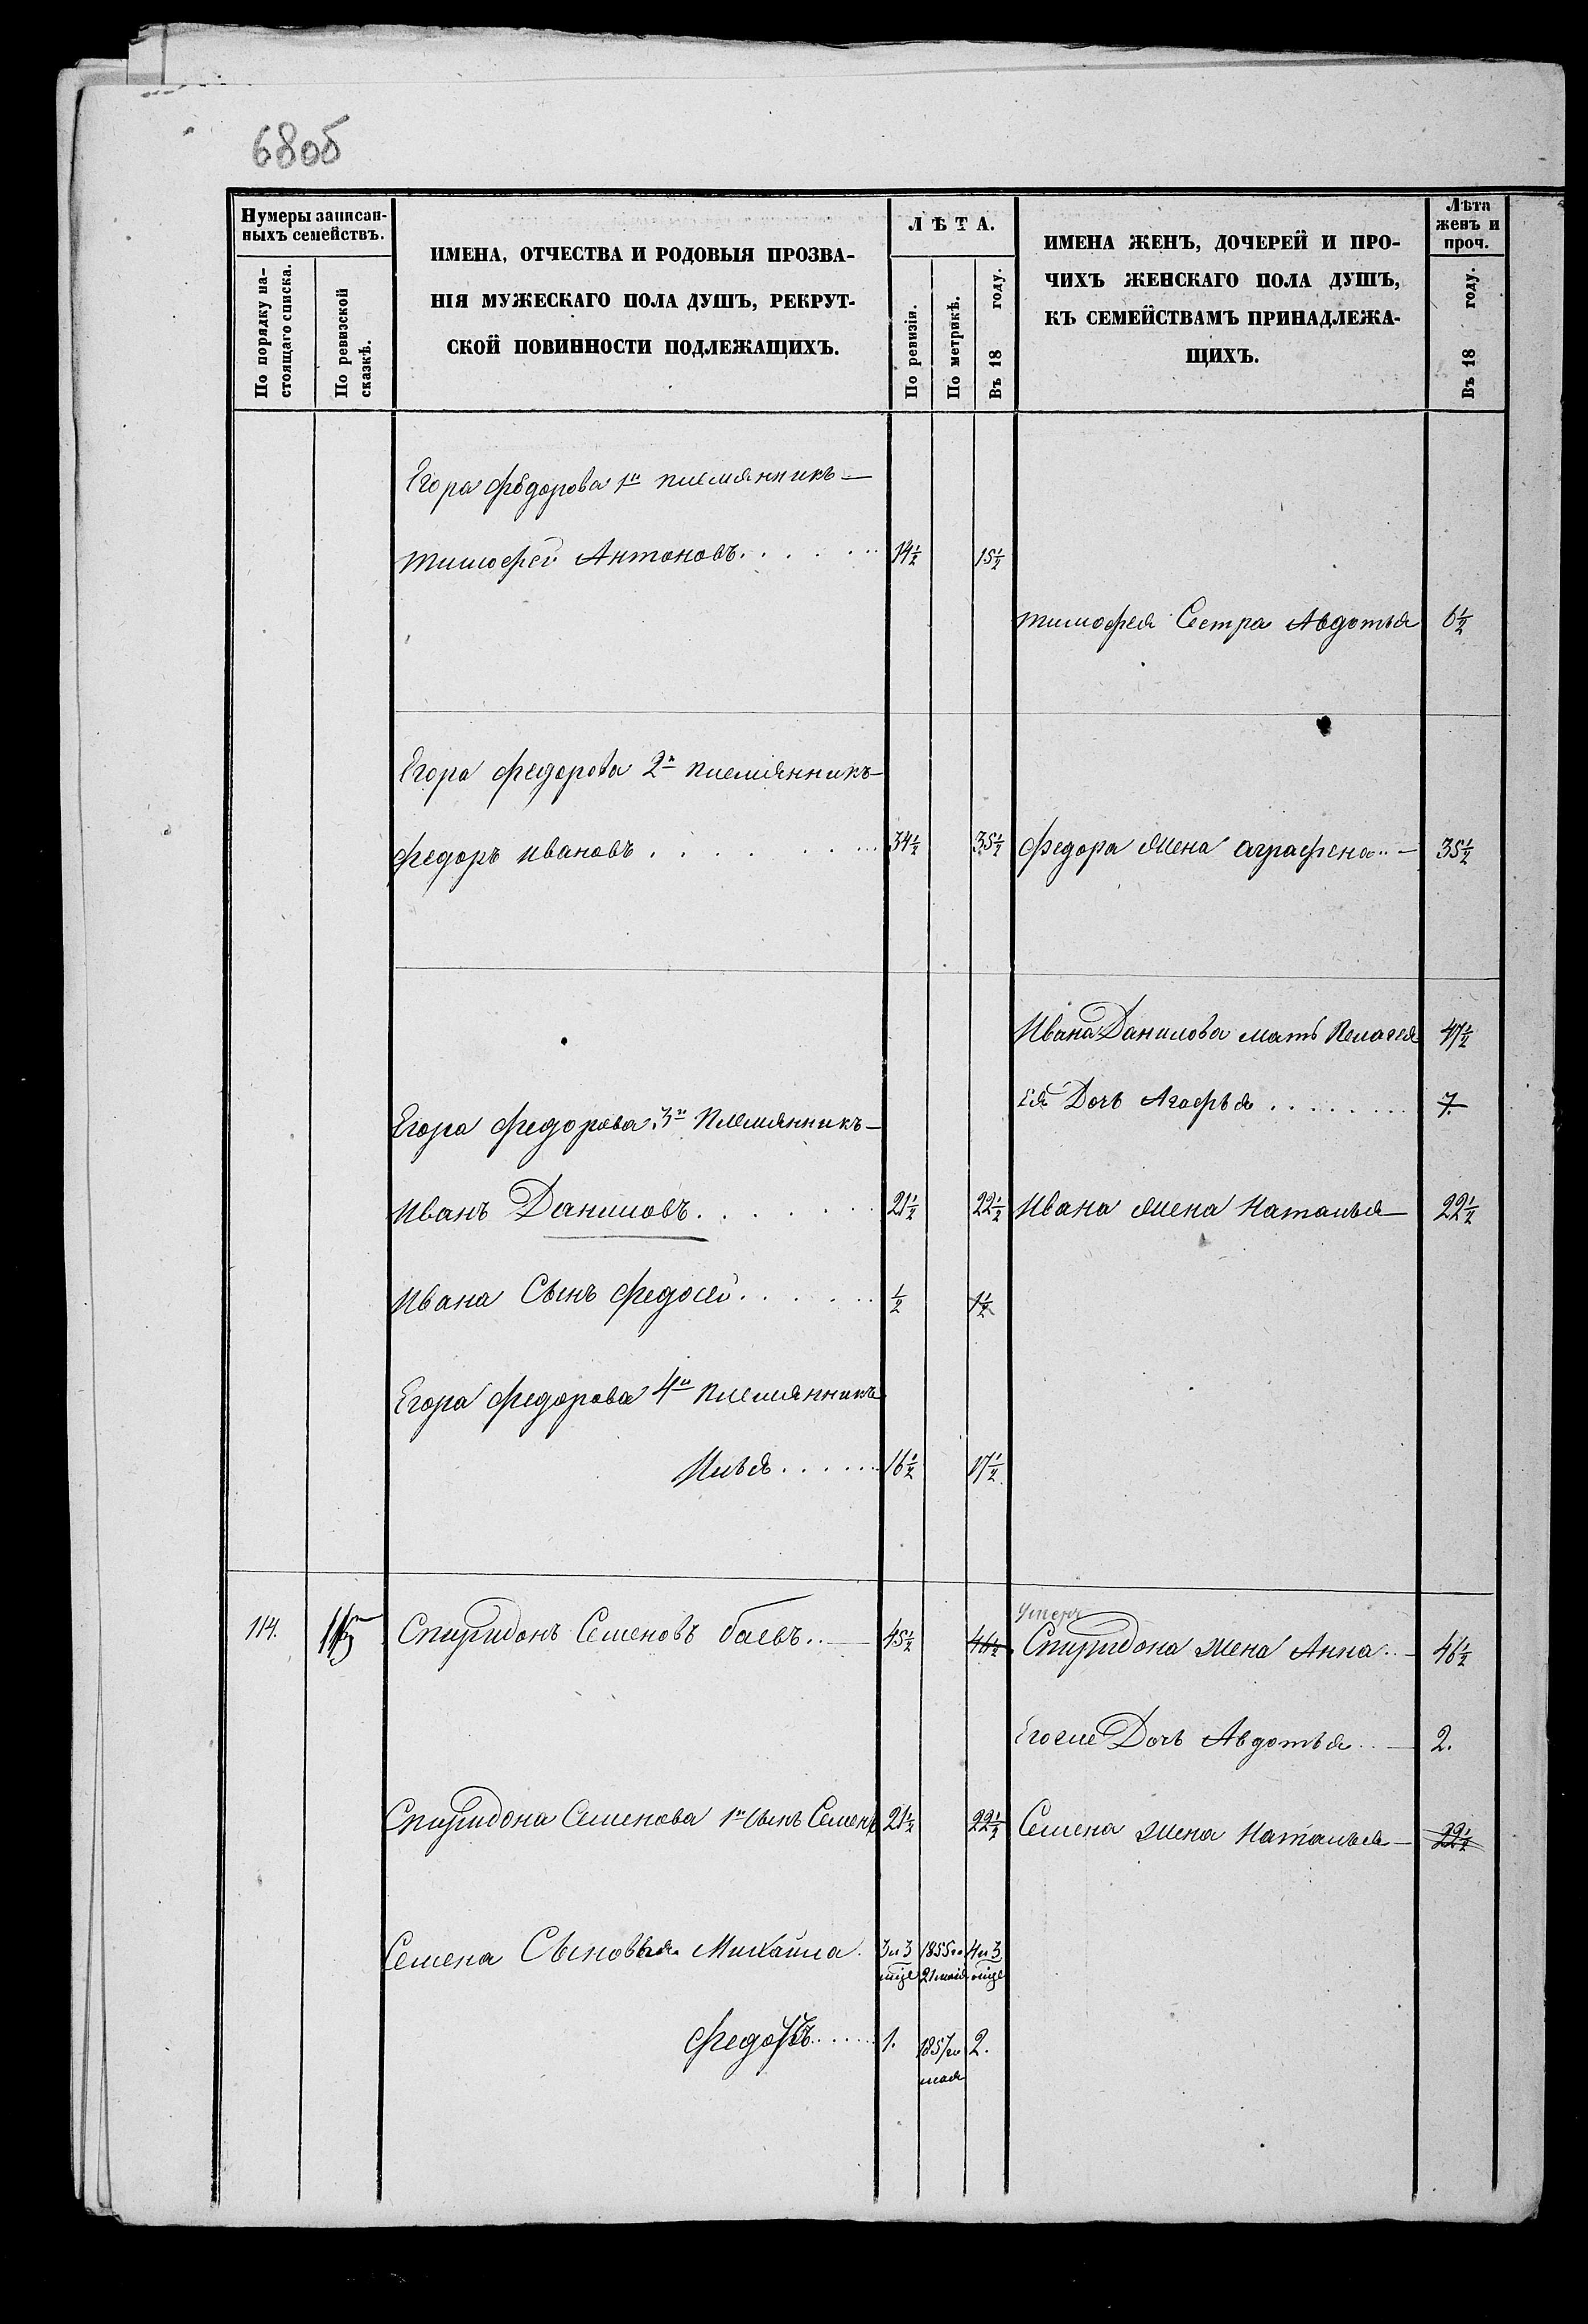 68об
Нумеры записан-
ныхъ семействъ.
По порядку на-
стоящаго списка.
По ревизской
сказкѣ.
ИМЕНА, ОТЧЕСТВА И РОДОВЫЯ ПРОЗВА-
НІЯ МУЖЕСКАГО ПОЛА ДУШЪ, РЕКРУТ-
СКОЙ ПОВИННОСТИ ПОДЛЕЖАЩИХЪ.
ЛѢТА.
По ревизіи.
По метрикѣ.
Въ 18 году.
ИМЕНА ЖЕНЪ, ДОЧЕРЕЙ И ПРО-
ЧИХЪ ЖЕНСКАГО ПОЛА ДУШЪ,
КЪ СЕМЕЙСТВАМЪ ПРИНАДЛЕЖА-
ЩИХЪ.
Лѣта
женъ и
проч.
Въ 18 году.
Егора Федорова 1й племянникъ—
тимофей Антоновъ. . . . . . 14½ 15½
тимофея Сестра Авдотья 6½
Егора федорова 2й племянникъ—
федоръ ивановъ . . . . . . . 34½ 35½ федора жена аграфена..— 35½
Ивана Данилова мать Пелагея 47½
Ея Дочь Агафья . . . . . . . 7.
Егора федорова 3й Племянникъ—
иванъ Даниловъ. . . . . . . 21½ 22½ Ивана жена Наталья— 22½
Ивана Сынъ федосей. . . . . . ½ 1½
Егора федорова 4й племянникъ
Илья. . . . . . 16½ 17½
умеръ
114. 115 Спиридонъ Семеновъ баевъ..— 45½ 46½ Спиридона жена Анна..— 46½
Егоже Дочь Авдотья..— 2.
Спиридона Семенова 1й сынъ Семенъ 21½ 22½ Семена жена Наталья— 22½
Семена Сыновья Михаила. 3и3 1855го 4и3
мѣце 21мая мѣце
федоръ. . . . . . 1. 1857го 2.
мая